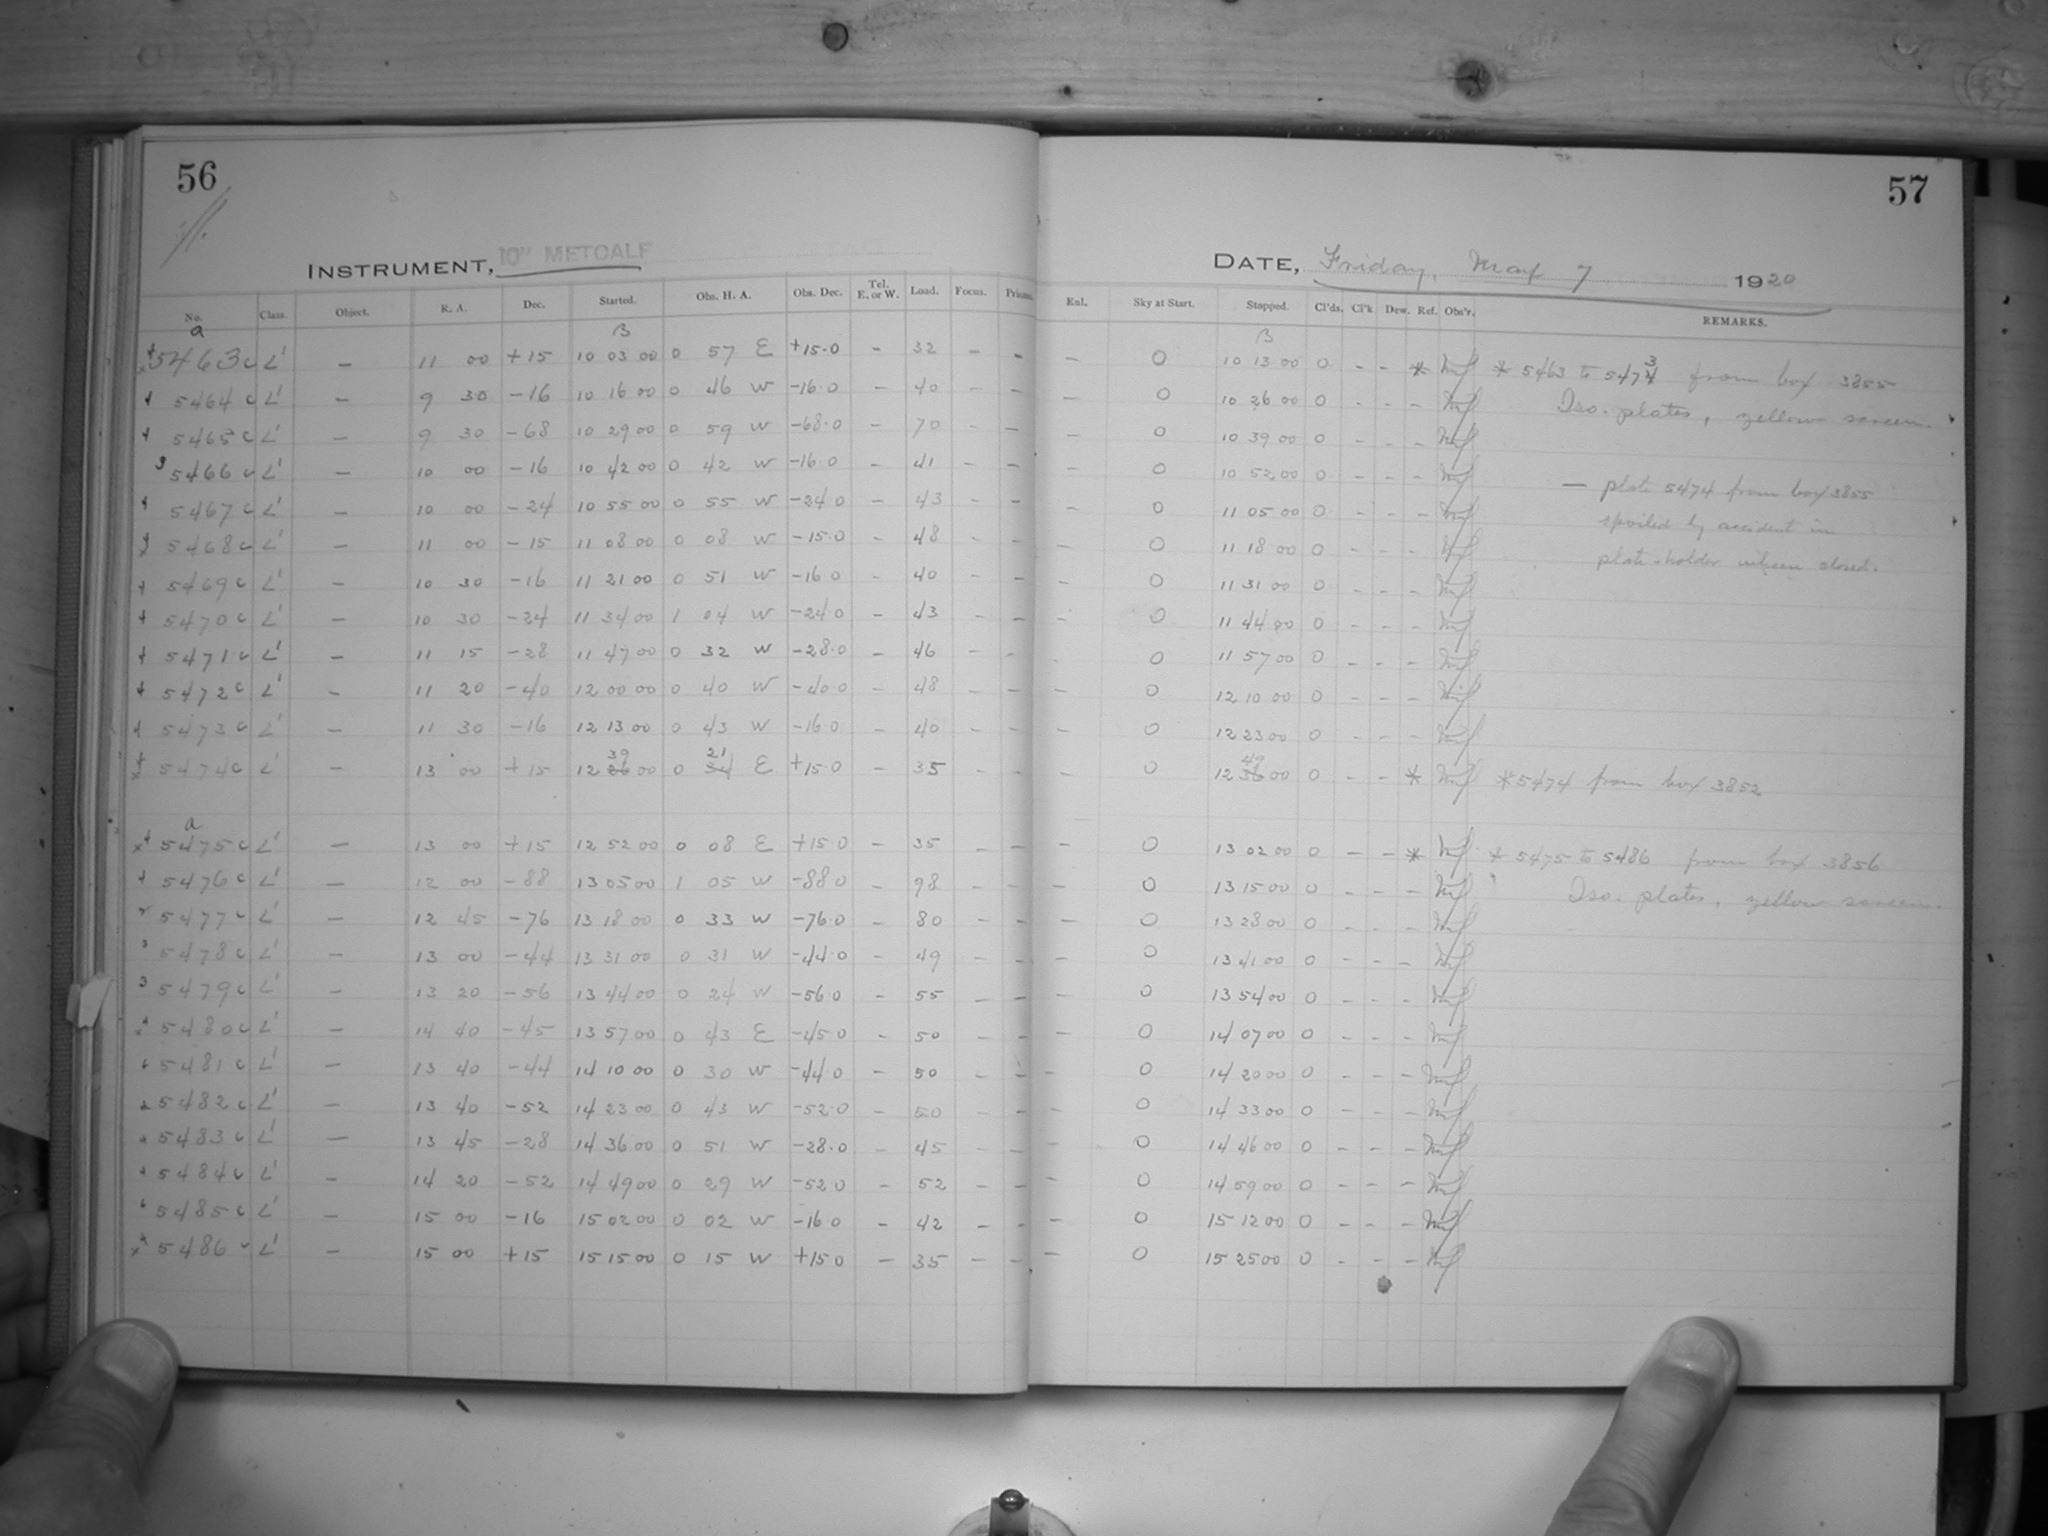 56
57
INSTRUMENT, 10" METCALF
DATE, Friday, May 7 1920
No. Class. Object. R. A. Dec. Started. Obs. H. A. Obs. Dec. Tel. E. or W. Load. Focus. Prisms. Enl. Sky at Start. Stopped. Cl'ds. Cl'k Dew. Ref. Obs'r. REMARKS.
a B B
5463 c L' — 11 00 +15 10 03 00 0 57 E +15.0 – 32 – – – 0 10 13 00 0 – – * * 5463 to 5473 from box 3855
5464 c L' — 9 30 -16 10 16 00 0 46 W -16.0 – 40 – – – 0 10 26 00 0 – – – Iso. plates, yellow screen.
5465 c L' — 9 30 -68 10 29 00 0 59 W -68.0 – 70 – – – 0 10 39 00 0 – – –
5466 c L' — 10 00 -16 10 42 00 0 42 W -16.0 – 41 – – – 0 10 52 00 0 – – – — plate 5474 from box 3855
5467 c L' — 10 00 -24 10 55 00 0 55 W -24.0 – 43 – – – 0 11 05 00 0 – – – spoiled by accident in
5468 c L' — 11 00 -15 11 08 00 0 08 W -15.0 – 48 – – – 0 11 18 00 0 – – – plate-holder when closed.
5469 c L' — 10 30 -16 11 21 00 0 51 W -16.0 – 40 – – – 0 11 31 00 0 – – –
5470 c L' — 10 30 -24 11 34 00 1 04 W -24.0 – 43 – – – 0 11 44 00 0 – – –
5471 c L' — 11 15 -28 11 47 00 0 32 W -28.0 – 46 – – – 0 11 57 00 0 – – –
5472 c L' — 11 20 -40 12 00 00 0 40 W -40.0 – 48 – – – 0 12 10 00 0 – – –
5473 c L' — 11 30 -16 12 13 00 0 43 W -16.0 – 40 – – – 0 12 23 00 0 – – –
39 21 49
5474 c L' — 13 00 +15 12 26 00 0 34 E +15.0 – 35 – – – 0 12 36 00 0 – – * *5474 from box 3852
a
5475 c L' — 13 00 +15 12 52 00 0 08 E +15.0 – 35 – – – 0 13 02 00 0 – – * * 5475 to 5486 from box 3856
5476 c L' — 12 00 -88 13 05 00 1 05 W -88.0 – 98 – – – 0 13 15 00 0 – – – Iso. plates, yellow screen.
5477 c L' — 12 45 -76 13 18 00 0 33 W -76.0 – 80 – – – 0 13 28 00 0 – – –
5478 c L' — 13 00 -44 13 31 00 0 31 W -44.0 – 49 – – – 0 13 41 00 0 – – –
5479 c L' — 13 20 -56 13 44 00 0 24 W -56.0 – 55 – – – 0 13 54 00 0 – – –
5480 c L' — 14 40 -45 13 57 00 0 43 E -45.0 – 50 – – – 0 14 07 00 0 – – –
5481 c L' — 13 40 -44 14 10 00 0 30 W -44.0 – 50 – – – 0 14 20 00 0 – – –
5482 c L' — 13 40 -52 14 23 00 0 43 W -52.0 – 50 – – – 0 14 33 00 0 – – –
5483 c L' — 13 45 -28 14 36 00 0 51 W -28.0 – 45 – – – 0 14 46 00 0 – – –
5484 c L' — 14 20 -52 14 49 00 0 29 W -52.0 – 52 – – – 0 14 59 00 0 – – –
5485 c L' — 15 00 -16 15 02 00 0 02 W -16.0 – 42 – – – 0 15 12 00 0 – – –
5486 c L' — 15 00 +15 15 15 00 0 15 W +15.0 – 35 – – – 0 15 25 00 0 – – –